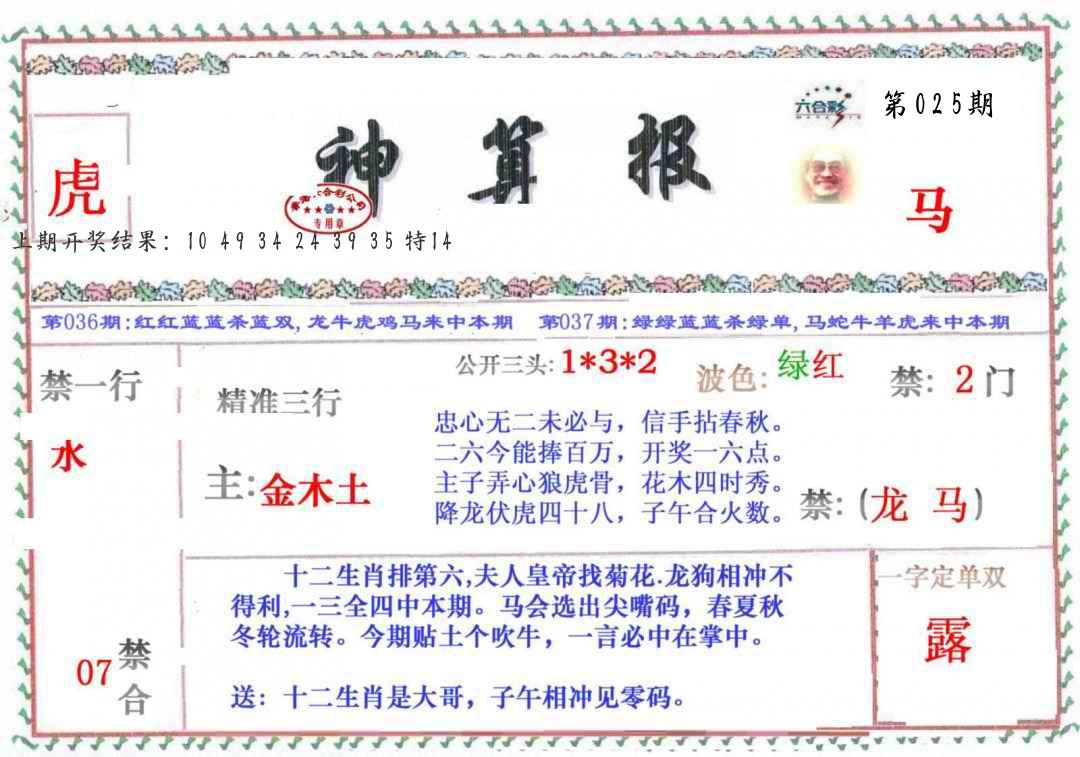 六合彩
第025期
神算报
虎
马
六合彩公司
专用章
上期开奖结果: 10 49 34 24 39 35 特14
第036期:红红蓝蓝杀蓝双,龙牛虎鸡马来中本期 第037期:绿绿蓝蓝杀绿单,马蛇牛羊虎来中本期
禁一行
水
精准三行
主:金木土
公开三头:1*3*2
波色:绿红
禁: 2门
忠心无二未必与，信手拈春秋。
二六今能捧百万，开奖一六点。
主子弄心狼虎骨，花木四时秀。
降龙伏虎四十八，子午合火数。
禁:(龙 马)
07
禁合
十二生肖排第六,夫人皇帝找菊花.龙狗相冲不
得利,一三全四中本期。马会选出尖嘴码，春夏秋
冬轮流转。今期贴土个吹牛，一言必中在掌中。
送: 十二生肖是大哥，子午相冲见零码。
一字定单双
露